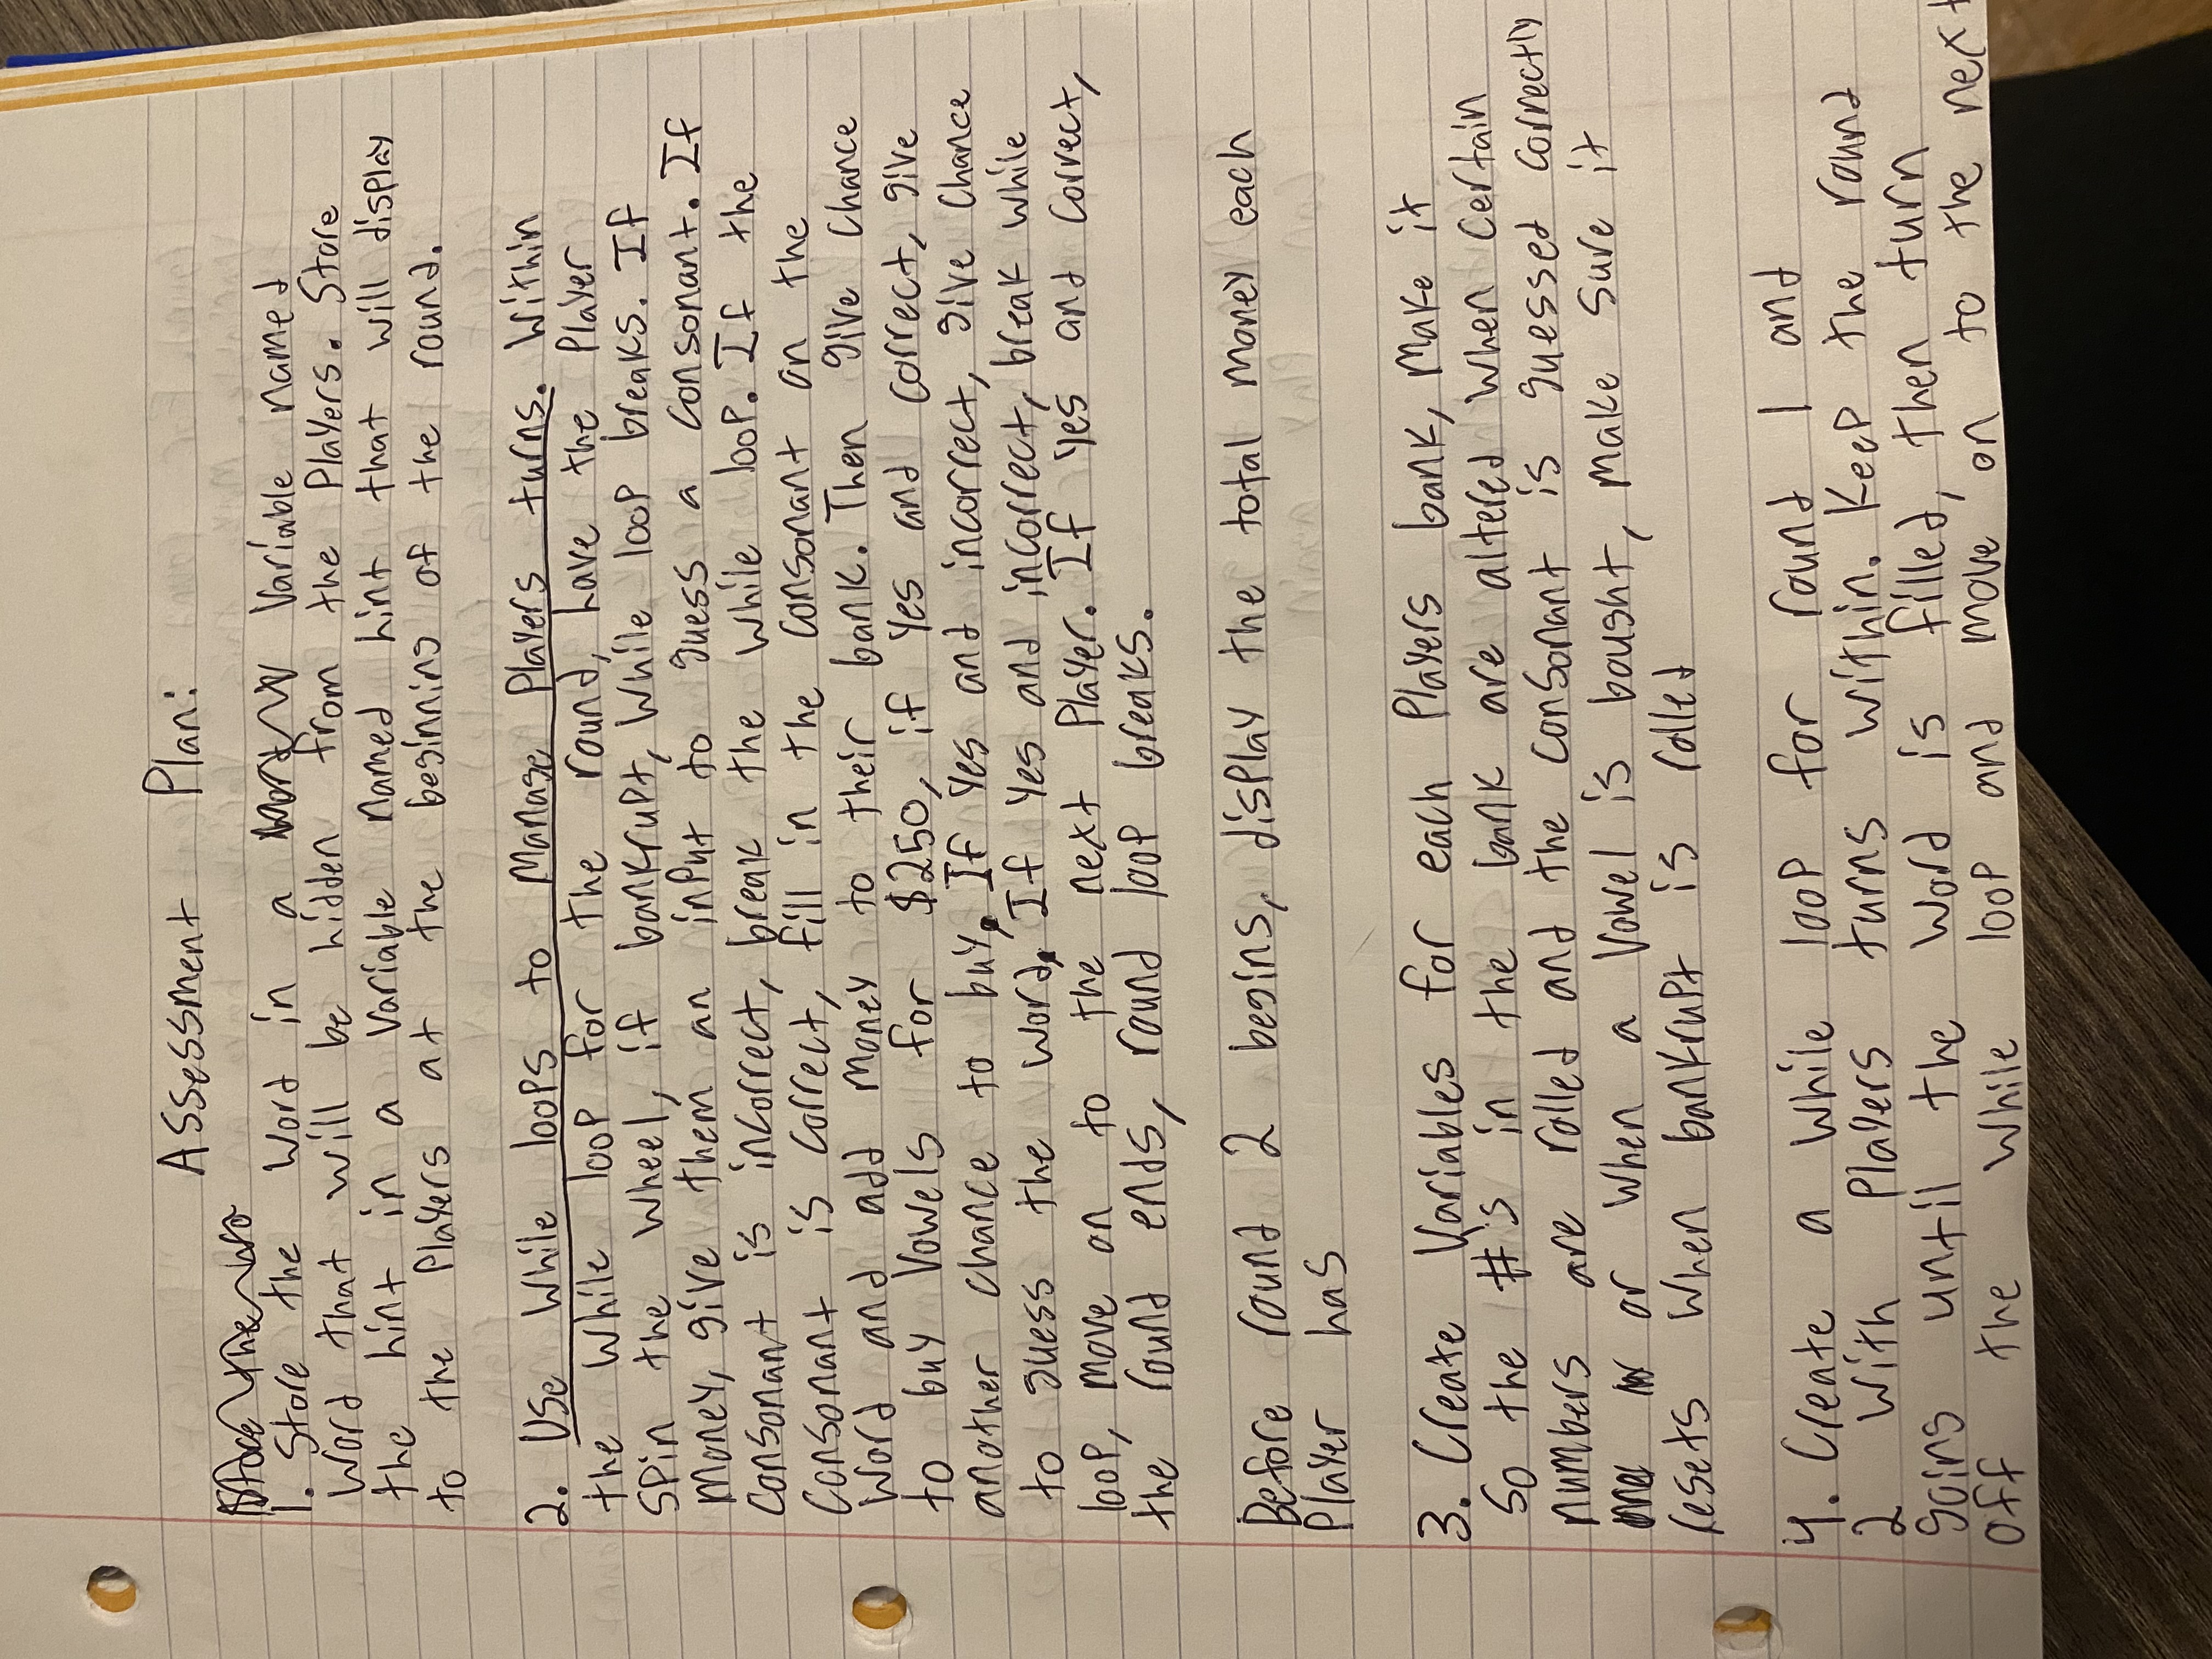 Assessment Plan:
Store the wo
1. Store the word in a word Variable named
word that will be hidden from the Players. Store
the hint in a variable named hint that will display
to the Players at the beginning of the round.
2. Use While loops to Manage Players turns. Within
the While loop for the round, have the Player
spin the wheel, if bankrupt, While loop breaks. If
money, give them an input to guess a consonant. If
consonant is incorrect, break the while loop. If the
consonant is correct, fill in the consonant on the
word and add money to their bank. Then give chance
to buy vowels for $250, if yes and correct, give
another chance to buy. If yes and incorrect, give chance
to guess the word. If yes and incorrect, break while
loop, move on to the next Player. If yes and correct,
the round ends, round loop breaks.
Before round 2 begins, display the total money each
Player has
3. Create Variables for each Players bank, make it
so the #'s in the bank are altered when certain
numbers are rolled and the consonant is guessed correctly
or when a vowel is bought, make sure it
resets when bankrupt is rolled
4. Create a while loop for round 1 and
2 with Players turns within. Keep the round
going until the word is filled, then turn
off the while loop and move on to the next